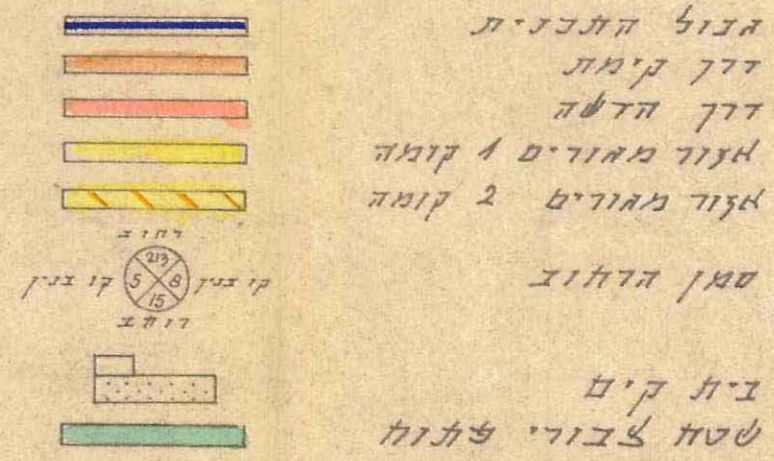 גבול התכנית
דרך קימת
דרך חדשה
אזור מגורים 1 קומה
אזור מגורים 2 קומה
רחוב
213
קו בנין 8 5 קו בנין
15
רוחב
סמן הרחוב
בית קים
שטח צבורי פתוח